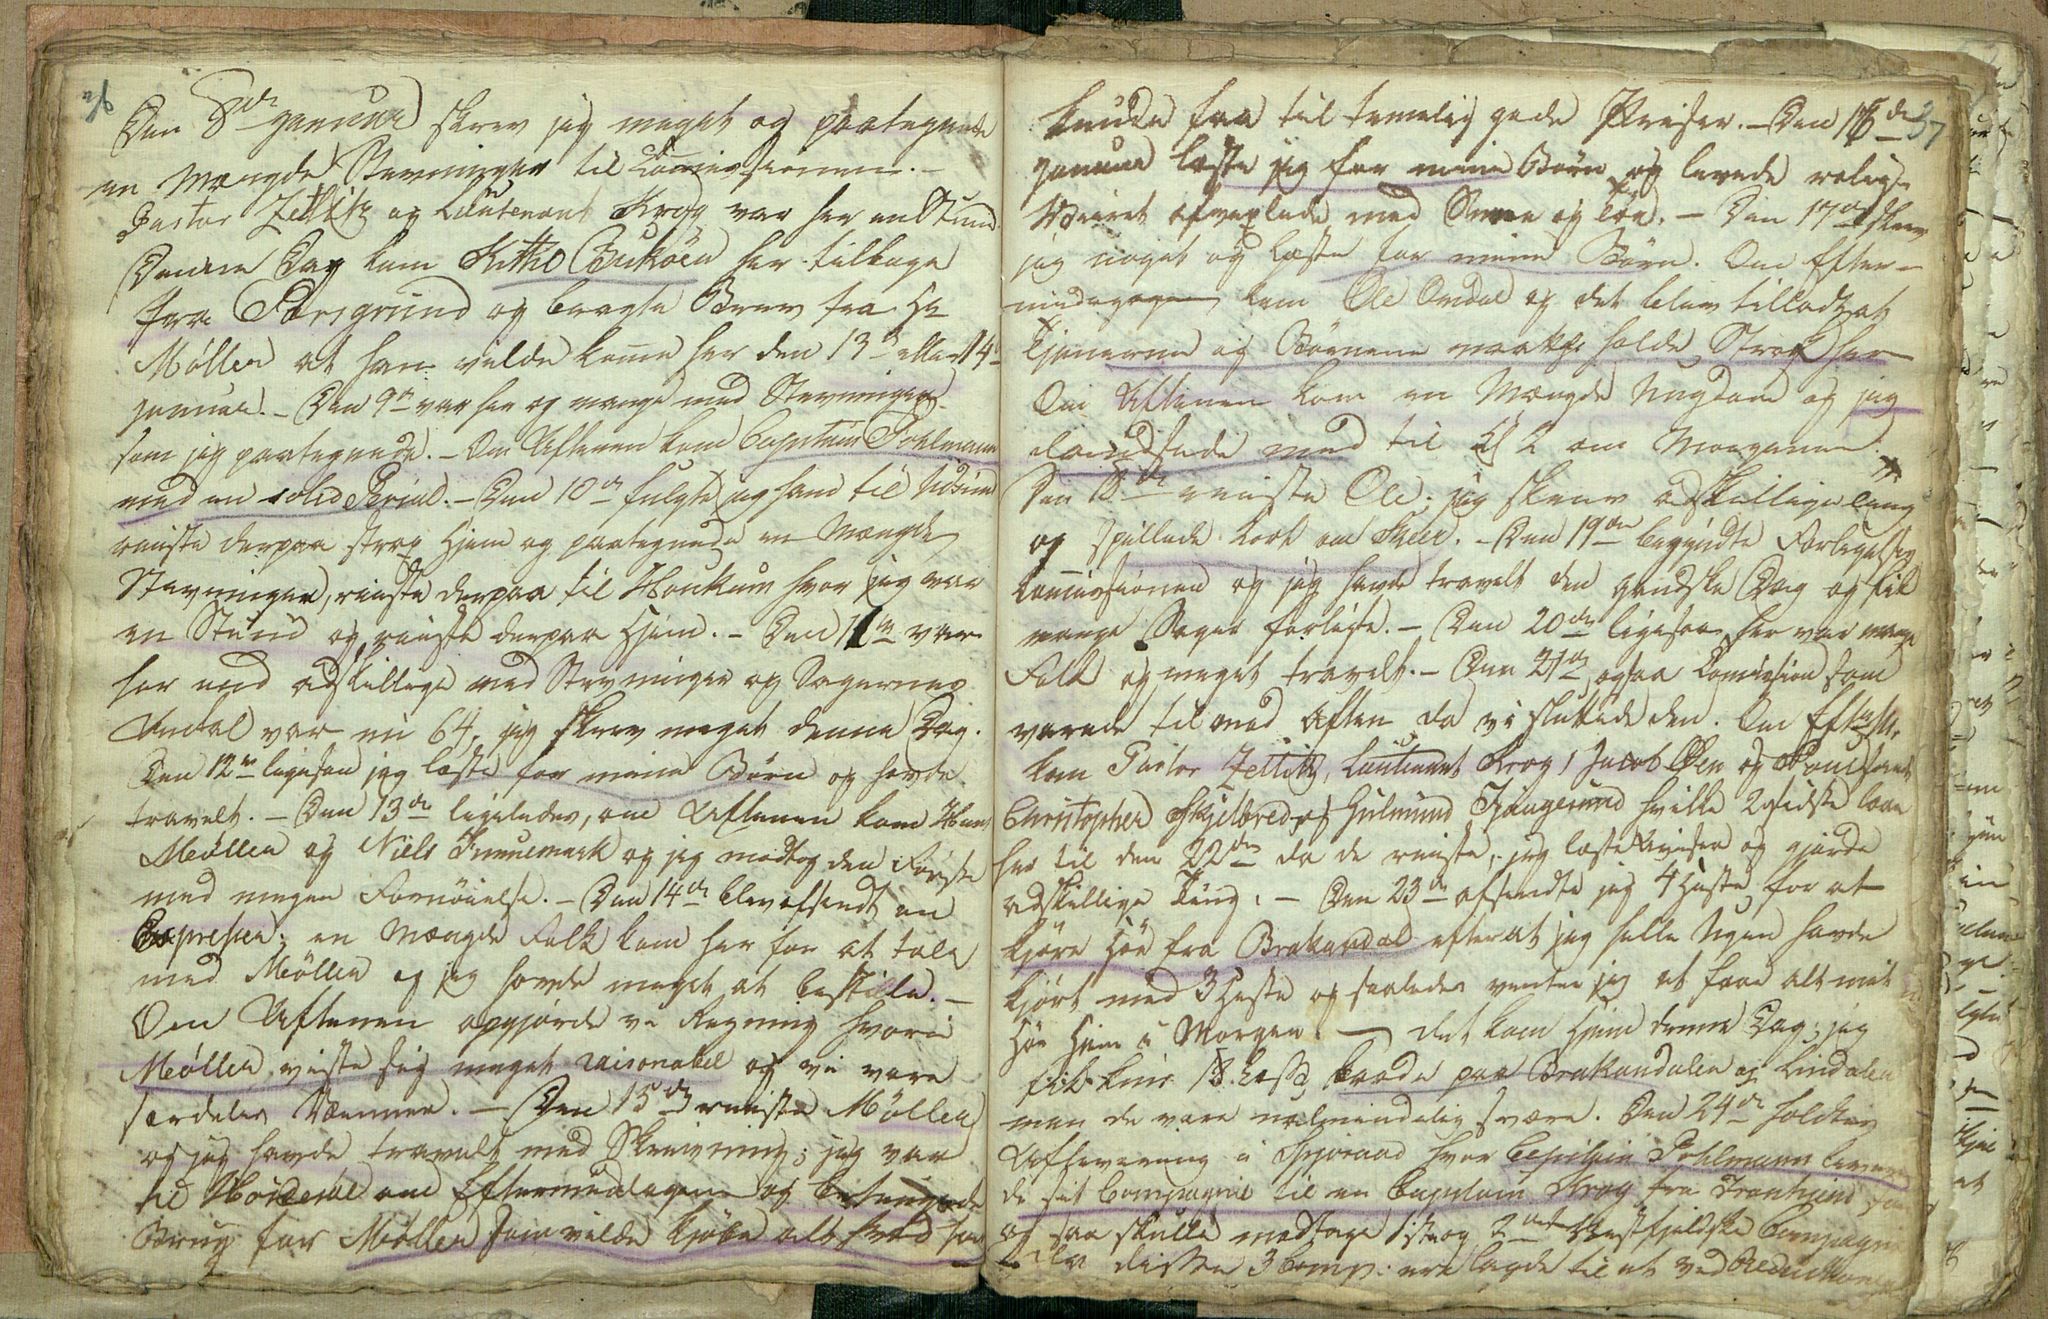 36
Den 8de Januar skrev jeg meget og paategnede
en Mængde Stevninger til Commissionen. –
Pastor Zetlitz og Lieutenant Krog var her en Stund
Denne Dag kom Kittil Bukøen her tilbage
fra Porsgrund og bragte Brev fra Hr
Møller at han vilde komme her den 13de eller 14de
Januar. – Den 9de var her og mange med Stevninger
som jeg paategnede. – Om Aftenen kom Capitain Pohlmann
med en solid Perial. – Den 10de fulgte jeg ham til
reiste derpaa strax Hjem og paategnede en Mængde
Stevninger, reiste derpaa til Haukum hvor jeg var
en Stund og reiste derpaa Hjem. – Den 11te var
her end adskillige med Stevninger og Sagernes
Andal var nu 64, jeg skrev meget denne Dag.
Den 12te ligesaa jeg læste for mine Børn og havde
travelt. – Den 13de ligeledes, om Aftenen kom Hans
Møller og Niels Funnemark og jeg modtog den Første
med megen Fornøielse. – Den 14de blev afsendt en
Expresse; en Mængde Folk kom her for at tale
med Møller og jeg havde meget at bestille. –
Om Aftenen opgjorde vi Regning hvori
Møller viste sig meget raisonabel og vi vare
særdeles Venner. – Den 15de reiste Møller
og jeg havde travelt med Skrivning; jeg var
til om Eftermiddagen og
Brug for Møller som vilde kjøbe alt hvad han
37
kunde faa til temelig gode Priser. – Den 16de
Januar læste jeg for mine Børn og levede rolig.
Veiret afvexlede med Snee og Tøe. – Den 17de skrev
jeg noget og læste for mine Børn. Om Efter-
middagen kom Ole Omdal og det blev tilladt at
Tjenerne og Børnene maatte holde Strok her
Om Aftenen kom en Mængde Ungdom og jeg
dandsede med til Kl 2 om Morgenen.
Den 18de reiste Ole. jeg skrev adskillige Ting
og spillede Kort om Skeer. – Den 19de begyndte Forligelses
Commissionen og jeg havde travelt den gandske Dag og fik
mange Sager forligte. – Den 20de ligesaa her var mange
Folk og meget travelt. – Den 21de ogsaa Comission som
varede til mod Aften da vi sluttede den. Om Efterm.
kom Pastor Zetlitz, Lieutenant Krog, Jacob Øen og
Christopher Skjelbred og Gulmund Tjangerund hvilke 2 sidste
her til den 22de da de reiste, jeg læste Aviser og gjorde
adskillige Ting. – Den 23de afsendte jeg 4 Heste for at
kjøre Høe fra Brokandal efterat jeg hele Ugen havde
kjørt med 3 Heste og saaledes venter jeg at faae alt mit
Høe Hjem i Morgen. – Det kom Hjem denne Dag; jeg
fik kun 18 Læss baade paa Brokandalen og Lindalen
men de vare ualmindelig svære. Den 24de holdtes
Aflevering i hvor Capitain Pohlmann levere
de sit Compagnie til en Capitain Krog fra Tronhjem som
og saa skulle modtage 1ste og 2det Vestfjeldske Compagnie
da disse 3 Comp: ere lagde til et ved